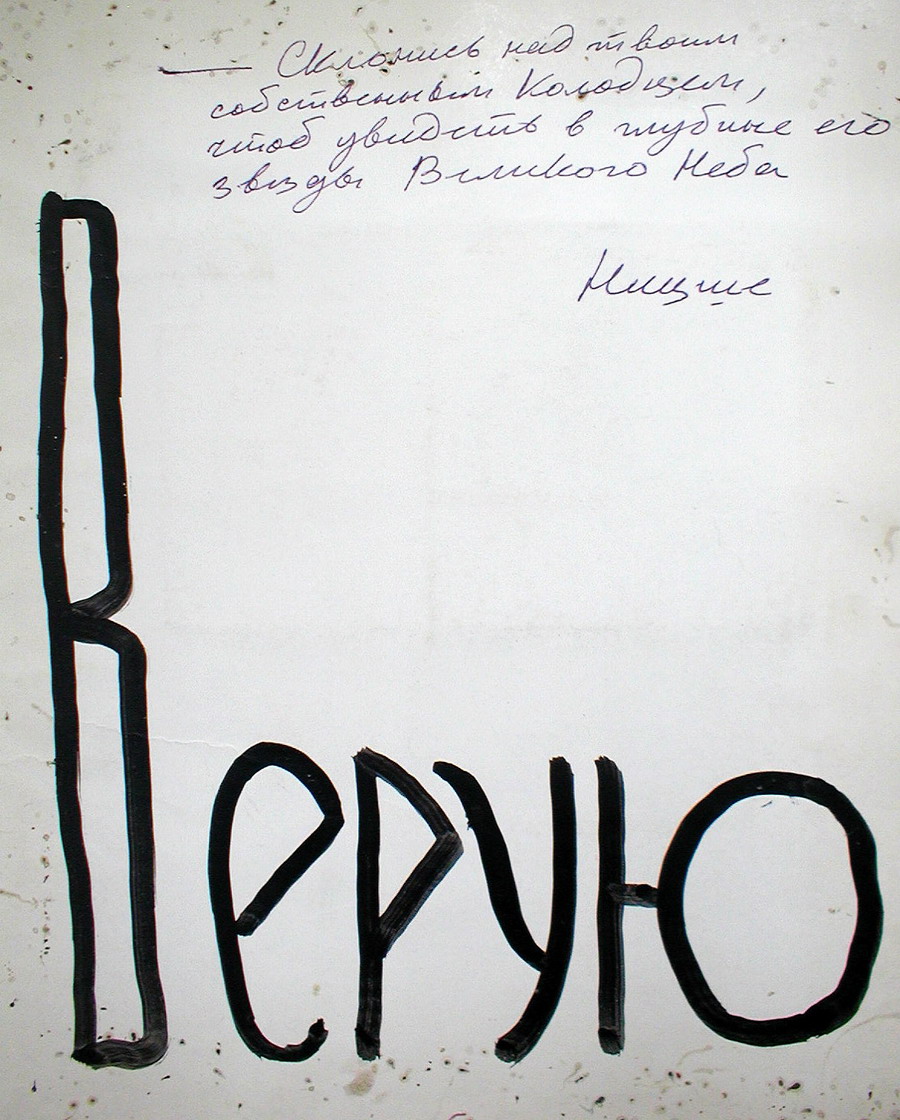 — Склонись над твоим
собственным Колодцем,
чтоб увидеть в глубине его
звезды Великого Неба
Ницше
Верую